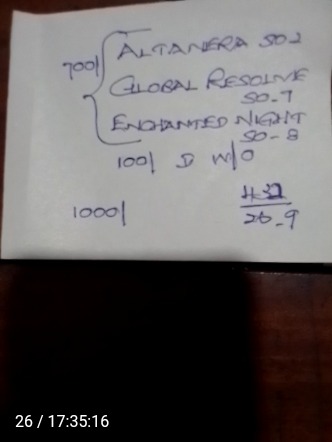 700/ ALTANERA SO-2
GLOBAL RESOLVE
SO-7
ENCHANTED NIGHT
SO-8
100/ D W/O
1000/
26-9
26 / 17:35:16